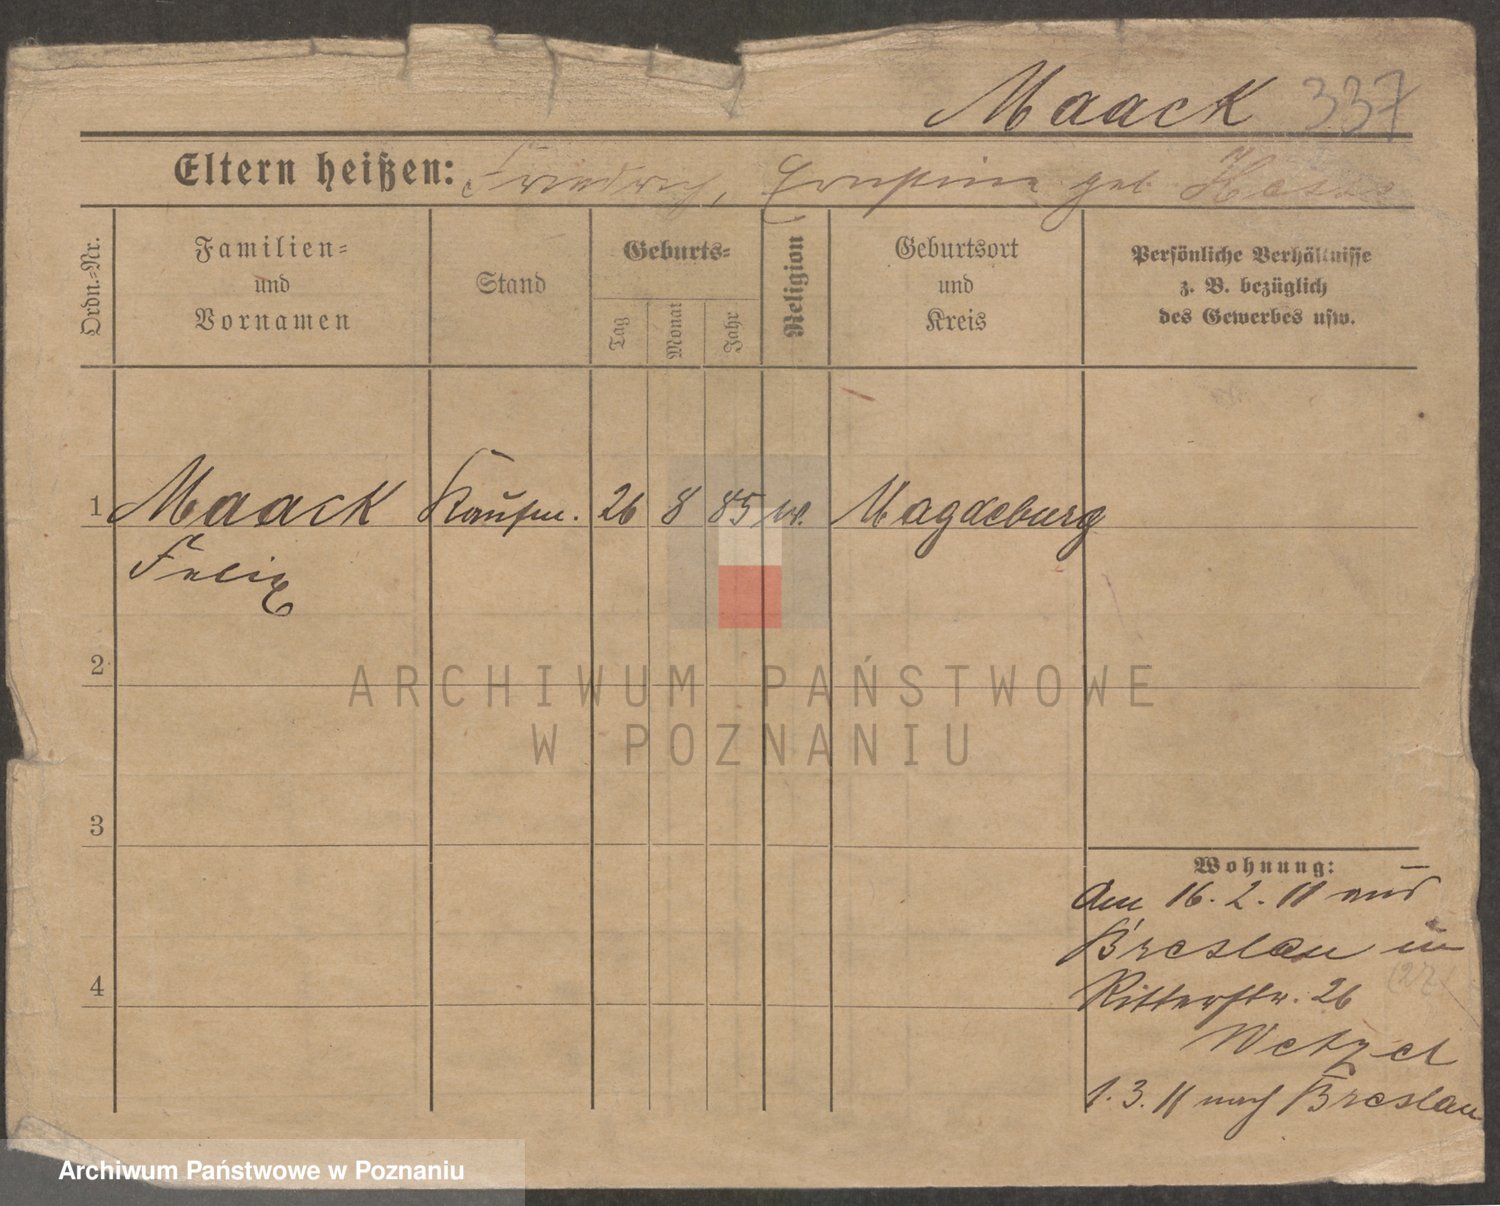 Maack 337
Eltern heißen: Friedrich, Ernstine geb.
Ordn.=Nr.
Familien=
und
Vornamen
Stand
Geburts=
Tag
Monat
Jahr
Religion
Geburtsort
und
Kreis
Persönliche Verhältnisse
z. B. bezüglich
des Gewerbes usw.
1 Maack Kaufm. 26 8 85 Magdeburg
Felix
2
ARCHIWUM PAŃSTWOWE
W POZNANIU
3
4
Wohnung:
Am 16. 2. 11 aus
Breslau in
Ritterstr. 26
(27)
Wetzel
1. 3. 11 nach Breslau
Archiwum Państwowe w Poznaniu